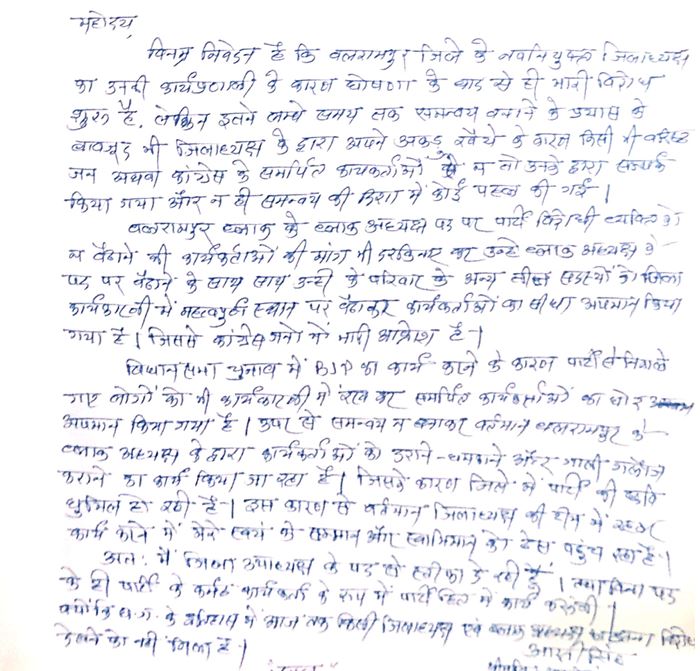 महोदय,
विनम्र निवेदन है कि बलरामपुर जिले के नवनियुक्त जिलाध्यक्ष
का उनकी कार्यप्रणाली के कारण घोषणा के बाद से ही भारी विरोध
शुरू है, लेकिन इतने लम्बे समय तक समन्वय बनाने के प्रयास के
बावजूद भी जिलाध्यक्ष के द्वारा अपने अकड़ू रवैये के कारण किसी भी वरिष्ठ
जन अथवा कांग्रेस के समर्पित कार्यकर्ताओं से न तो उनके द्वारा सम्पर्क
किया गया और न ही समन्वय की दिशा में कोई पहल की गई।
बलरामपुर ब्लाक के ब्लाक अध्यक्ष पद पर पार्टी विरोधी व्यक्ति को
न बैठाने की कार्यकर्ताओं की मांग भी दरकिनार कर उन्हे ब्लाक अध्यक्ष के
पद पर बैठाने के साथ साथ उन्ही के परिवार के अन्य तीन सदस्यों को जिला
कार्यकारणी में महत्वपूर्ण स्थान पर बैठाकर कार्यकर्ताओं का सीधा अपमान किया
गया है। जिससे कांग्रेस जनों में भारी आक्रोश है।
विधानसभा चुनाव में BJP का कार्य करने के कारण पार्टी से निकाले
गए लोगों को भी कार्यकारणी में रख कर समर्पित कार्यकर्ताओं का घोर
अपमान किया गया है। ऊपर से समन्वय न बनाकर वर्तमान बलरामपुर के
ब्लाक अध्यक्ष के द्वारा कार्यकर्ताओं को डराने-धमकाने और गाली गलौज
कराने का कार्य किया जा रहा है। जिसके कारण जिले में पार्टी की छवि
धुमिल हो रही है। इस कारण से वर्तमान जिलाध्यक्ष की टीम में रहकर
कार्य करने में मेरे स्वयं के सम्मान और स्वाभिमान को ठेस पहुंच रहा है।
अतः मैं जिला उपाध्यक्ष के पद से इस्तीफा दे रही हूँ। तथा बिना पद
के ही पार्टी के कर्मठ कार्यकर्ता के रूप में पार्टी हित में कार्य करूंगी।
क्योंकि छ.ग. के इतिहास में आज तक किसी जिलाध्यक्ष एवं ब्लाक अध्यक्ष का इतना विरोध
देखने को नहीं मिला है।
आरती सिंह